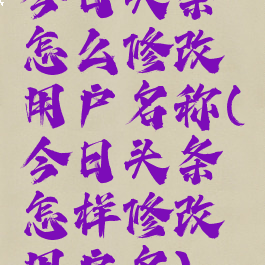 今日头条
怎么修改
用户名称(
今日头条
怎样修改
用户名)